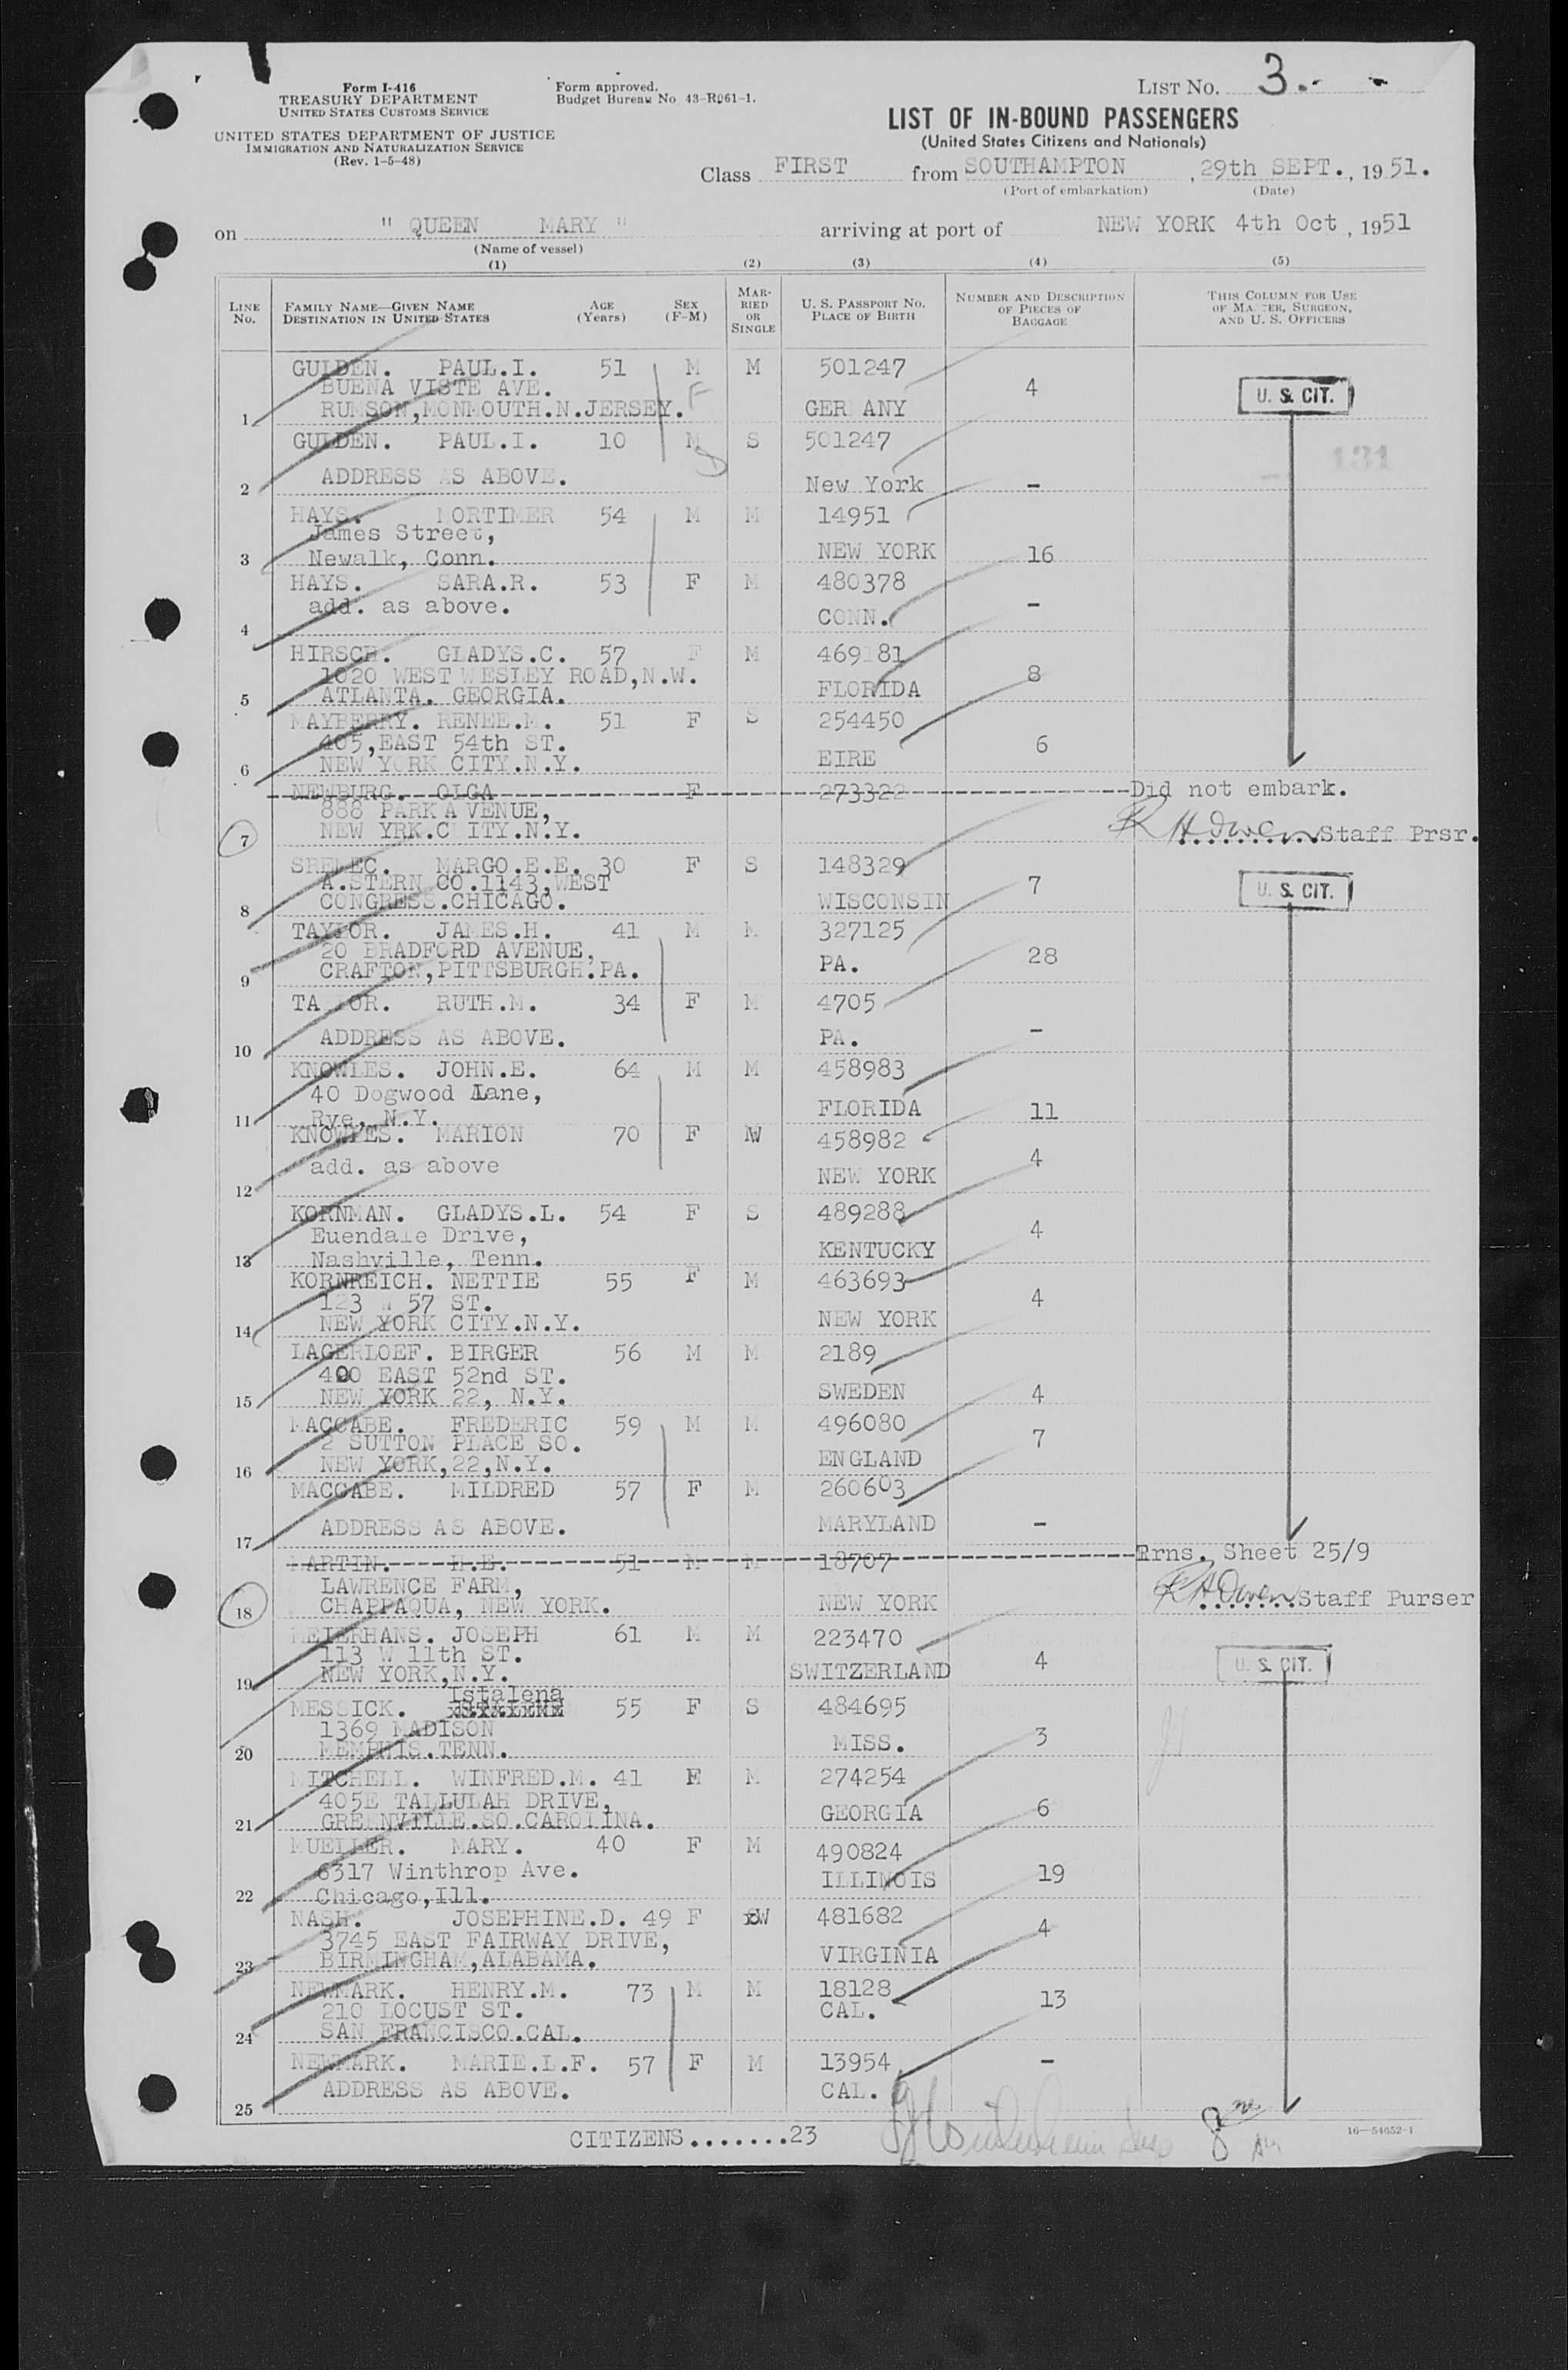 Form I-416
TREASURY DEPARTMENT
UNITED STATES CUSTOMS SERVICE
UNITED STATES DEPARTMENT OF JUSTICE
IMMIGRATION AND NATURALIZATION SERVICE
(Rev. 1-5-48)
Form approved.
Budget Bureau No. 43-R061-1.
LIST No. 3.
LIST OF IN-BOUND PASSENGERS
(United States Citizens and Nationals)
Class FIRST from SOUTHAMPTON, 29th SEPT., 1951.
(Port of embarkation) (Date)
on " QUEEN MARY " arriving at port of NEW YORK 4th Oct, 1951
(Name of vessel)
(1) (2) (3) (4) (5)
LINE No. FAMILY NAME—GIVEN NAME DESTINATION IN UNITED STATES AGE (Years) SEX (F-M) MARRIED OR SINGLE U. S. PASSPORT NO. PLACE OF BIRTH NUMBER AND DESCRIPTION OF PIECES OF BAGGAGE THIS COLUMN FOR USE OF MASTER, SURGEON, AND U. S. OFFICERS
GULDEN. PAUL.I. 51 M M 501247
BUENA VISTE AVE. F 4 U. S. CIT.
1 RUMSON,MONMOUTH.N.JERSEY. GERMANY
GULDEN. PAUL.I. 10 M S 501247
131
ADDRESS AS ABOVE.
2 New York -
HAYS. MORTIMER 54 M M 14951
James Street,
3 Newalk, Conn. NEW YORK 16
HAYS. SARA.R. 53 F M 480378
add. as above. -
4 CONN.
HIRSCH. GLADYS.C. 57 F M 469181
1020 WEST WESLEY ROAD,N.W. 8
5 ATLANTA. GEORGIA. FLORIDA
MAYBERRY. RENEE.M. 51 F S 254450
405,EAST 54th ST. 6
6 NEW YORK CITY.N.Y. EIRE
NEWBURG. OLGA F 273322 Did not embark.
888 PARK A VENUE,
7 NEW YRK.C ITY.N.Y. R H Owen Staff Prsr.
SRELEC. MARGO.E.E. 30 F S 148329
A.STERN CO.1143,WEST 7 U. S. CIT.
8 CONGRESS.CHICAGO. WISCONSIN
TAYLOR. JAMES.H. 41 M M 327125
20 BRADFORD AVENUE, 28
9 CRAFTON,PITTSBURGH.PA. PA.
TAYLOR. RUTH.M. 34 F M 4705
10 ADDRESS AS ABOVE. PA. -
KNOWLES. JOHN.E. 64 M M 458983
40 Dogwood Lane,
11 Rye, N.Y. FLORIDA 11
KNOWLES. MARION 70 F W 458982
add. as above 4
12 NEW YORK
KORNMAN. GLADYS.L. 54 F S 489288
Euendale Drive, 4
13 Nashville, Tenn. KENTUCKY
KORNREICH. NETTIE 55 F M 463693
123 W 57 ST. 4
14 NEW YORK CITY.N.Y. NEW YORK
LAGERLOEF. BIRGER 56 M M 2189
400 EAST 52nd ST.
15 NEW YORK 22, N.Y. SWEDEN 4
MACCABE. FREDERIC 59 M M 496080
2 SUTTON PLACE SO. 7
16 NEW YORK,22,N.Y. ENGLAND
MACCABE. MILDRED 57 F M 260603
17 ADDRESS AS ABOVE. MARYLAND -
MARTIN. H.E. 51 M M 18707 Trns. Sheet 25/9
LAWRENCE FARM,
18 CHAPPAQUA, NEW YORK. NEW YORK R H Owen Staff Purser
MEIERHANS. JOSEPH 61 M M 223470
113 W 11th ST. 4 U. S. CIT.
19 NEW YORK,N.Y. SWITZERLAND
Istalena
MESSICK. 55 F S 484695
1369 MADISON
20 MEMPHIS.TENN. MISS. 3
MITCHELL. WINFRED.M. 41 F M 274254
405E TALLULAH DRIVE, 6
21 GREENVILLE.SO.CAROLINA. GEORGIA
MUELLER. MARY. 40 F M 490824
6317 Winthrop Ave. 19
22 Chicago,Ill. ILLINOIS
NASH. JOSEPHINE.D. 49 F W 481682
3745 EAST FAIRWAY DRIVE, 4
23 BIRMINGHAM,ALABAMA. VIRGINIA
NEWMARK. HENRY.M. 73 M M 18128
210 LOCUST ST. CAL. 13
24 SAN FRANCISCO.CAL.
NEWMARK. MARIE.L.F. 57 F M 13954 -
25 ADDRESS AS ABOVE. CAL.
CITIZENS.......23
16—54652-1